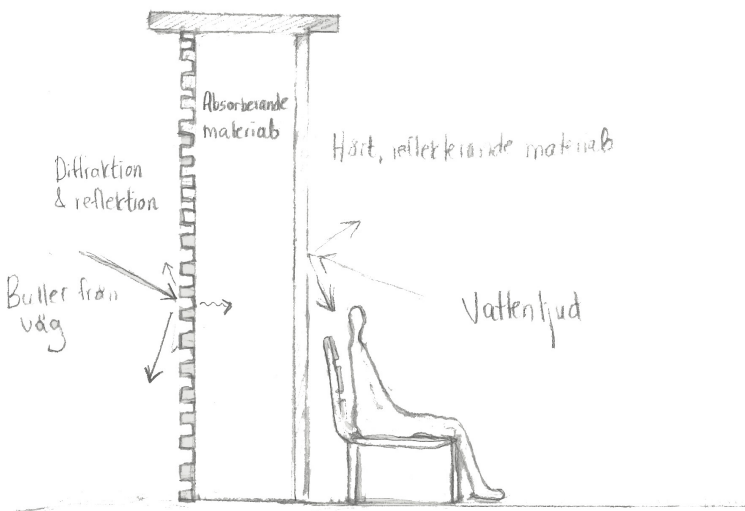 Absorberande
material
Hårt, reflekterande material
Diffraktion
& reflektion
Buller från
väg
Vattenljud